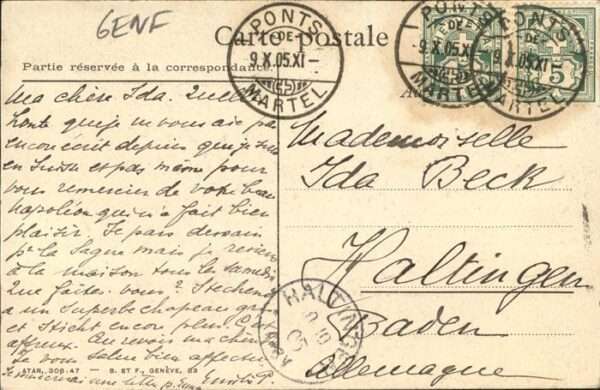 GENF
Carte postale
PONTS-DE-MARTEL
9.X.05.XI
PONTS-DE-MARTEL
9.X.05.XI
PONTS-DE-MARTEL
9.X.05.XI
5
Partie réservée à la correspondance.
Ma chère Ida. Quelle
honte que je ne vous aie pas
encore écrit depuis que je suis
en Suisse et pas même pour
vous remercier de votre beau
napoléon qui m'a fait bien
plaisir. Je pars demain
pr la Sagne mais je reviens
à la maison tous les samedis
Que faites-vous?
a un superbe chapeau
et
affreux. Au revoir ma chère
Je vous salue bien affect
Mademoiselle
Ida Beck
Haltingen
Baden
Allemagne
HALTINGEN
10
05
ATAR, 306-47 — B. ET F., GENÈVE, 83